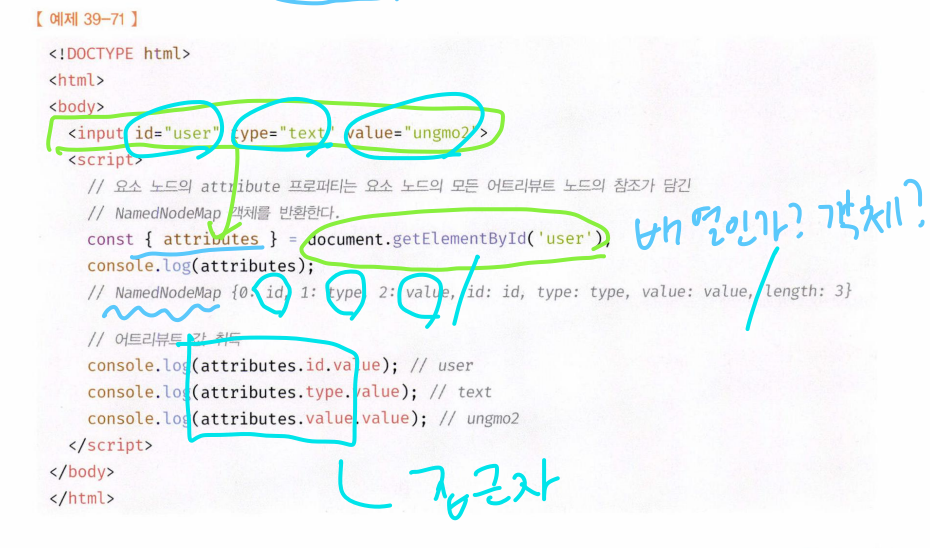 【 예제 39-71 】
<!DOCTYPE html>
<html>
<body>
<input id="user" type="text" value="ungmo2">
<script>
// 요소 노드의 attribute 프로퍼티는 요소 노드의 모든 어트리뷰트 노드의 참조가 담긴
// NamedNodeMap 객체를 반환한다.
const { attributes } = document.getElementById('user');
배열인가? 객체?
console.log(attributes);
// NamedNodeMap {0: id, 1: type, 2: value, id: id, type: type, value: value, length: 3}
// 어트리뷰트 값 취득
console.log(attributes.id.value); // user
console.log(attributes.type.value); // text
console.log(attributes.value.value); // ungmo2
</script>
</body>
접근자
</html>